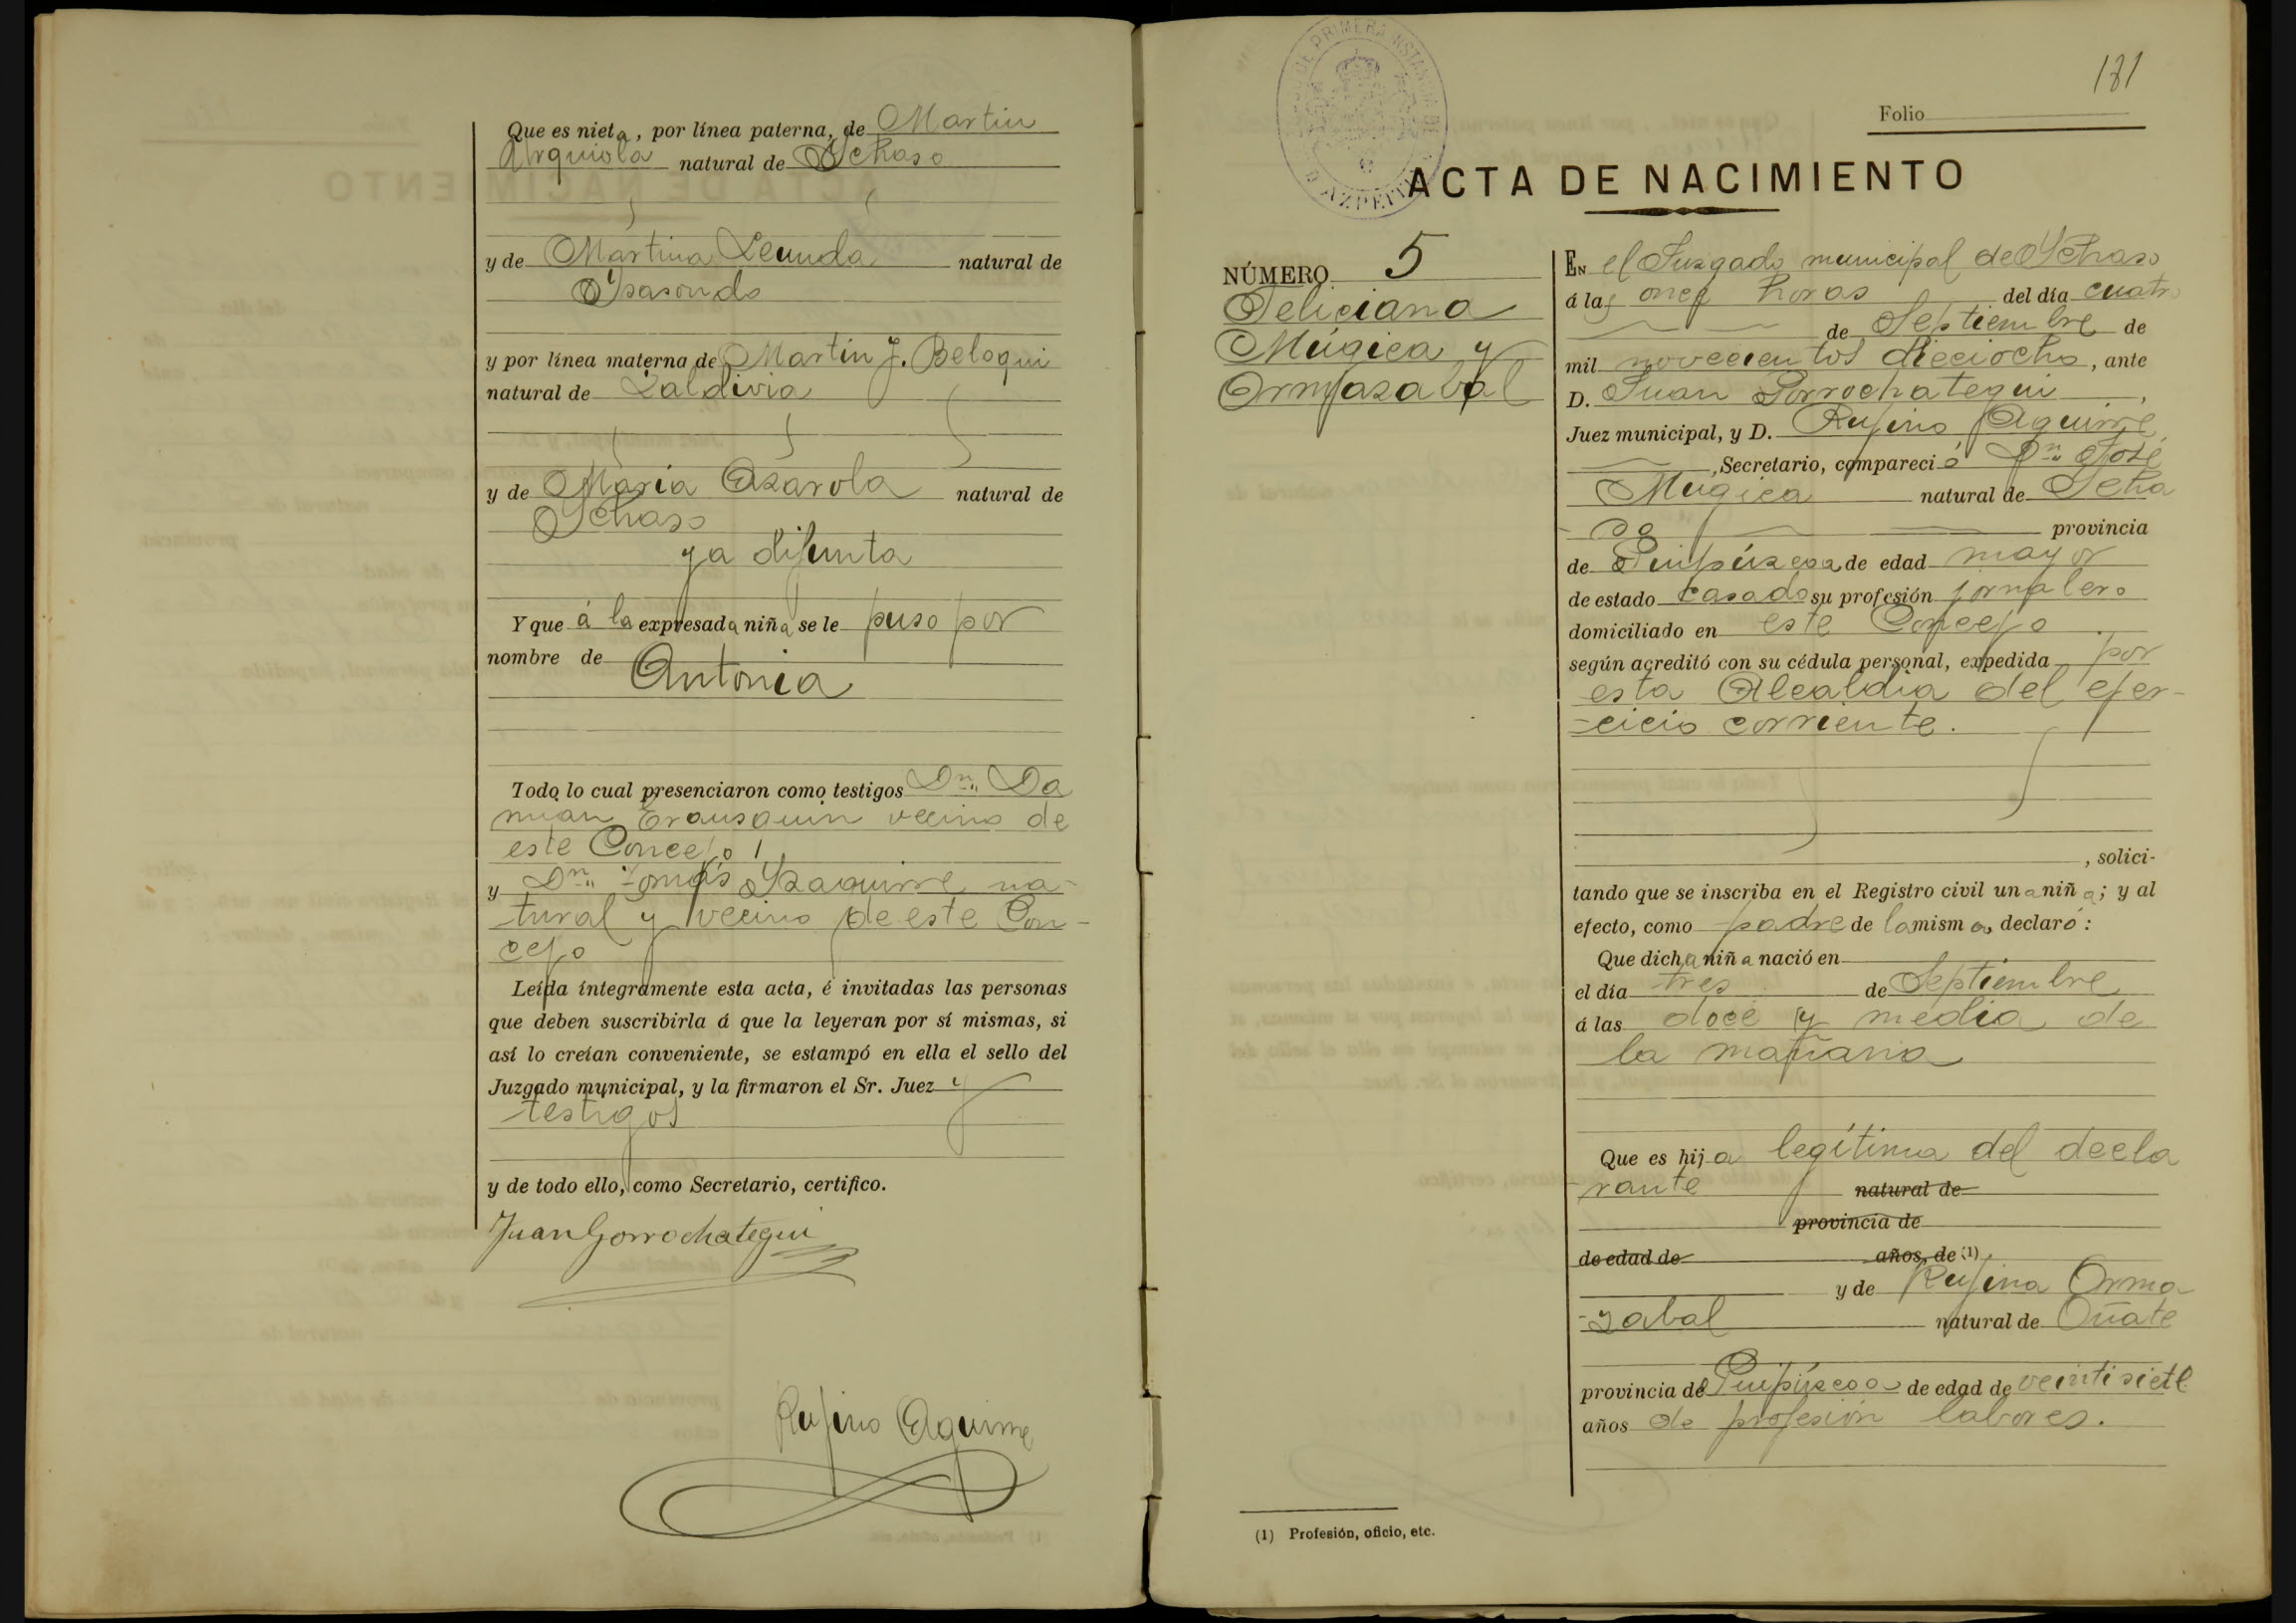 Que es nieta, por línea paterna, de Martin
Arquiola natural de Ychaso
y de Martina Lecunda natural de
Ysasondo
y por línea materna de Martin J. Beloqui
natural de Zaldivia
y de Maria Azarola natural de
Ychaso
ya difunta
Y que á la expresada niña se le puso por
nombre de
Antonia
Todo lo cual presenciaron como testigos Dn. Da
mian Erausquin vecino de
este Concejo
y Dn. Tomás Yzaguirre na-
tural y vecino de este Con-
cejo
Leída íntegramente esta acta, é invitadas las personas
que deben suscribirla á que la leyeran por sí mismas, si
así lo creían conveniente, se estampó en ella el sello del
Juzgado municipal, y la firmaron el Sr. Juez y
testigos
y de todo ello, como Secretario, certifico.
Juan Gorrochategui
Rufino Aguirre
JUZGADO DE PRIMERA INSTANCIA DE AZPEITIA
181
Folio
ACTA DE NACIMIENTO
NÚMERO 5
Feliciana
Múgica y
Ormazabal
EN el Juzgado municipal de Ychaso
á las once horas del día cuatro
de Septiembre de
mil novecientos dieciocho, ante
D. Juan Gorrochategui,
Juez municipal, y D. Rufino Aguirre,
Secretario, compareció Dn. José
Mugica natural de Icha
-so provincia
de Guipúzcoa de edad mayor
de estado casado su profesión jornalero
domiciliado en este Concejo
según acreditó con su cédula personal, expedida por
esta Alcaldia del ejer-
-cicio corriente.
, solici-
tando que se inscriba en el Registro civil una niña; y al
efecto, como padre de la misma, declaró:
Que dicha niña nació en
el día tres de Septiembre
á las doce y media de
la mañana
Que es hija legítima del decla
rante natural de
provincia de
de edad de años, de (1)
y de Rufina Orma
-zabal natural de Oñate
provincia de Guipúzcoa de edad de veintisiete
años de profesión labores.
(1) Profesión, oficio, etc.